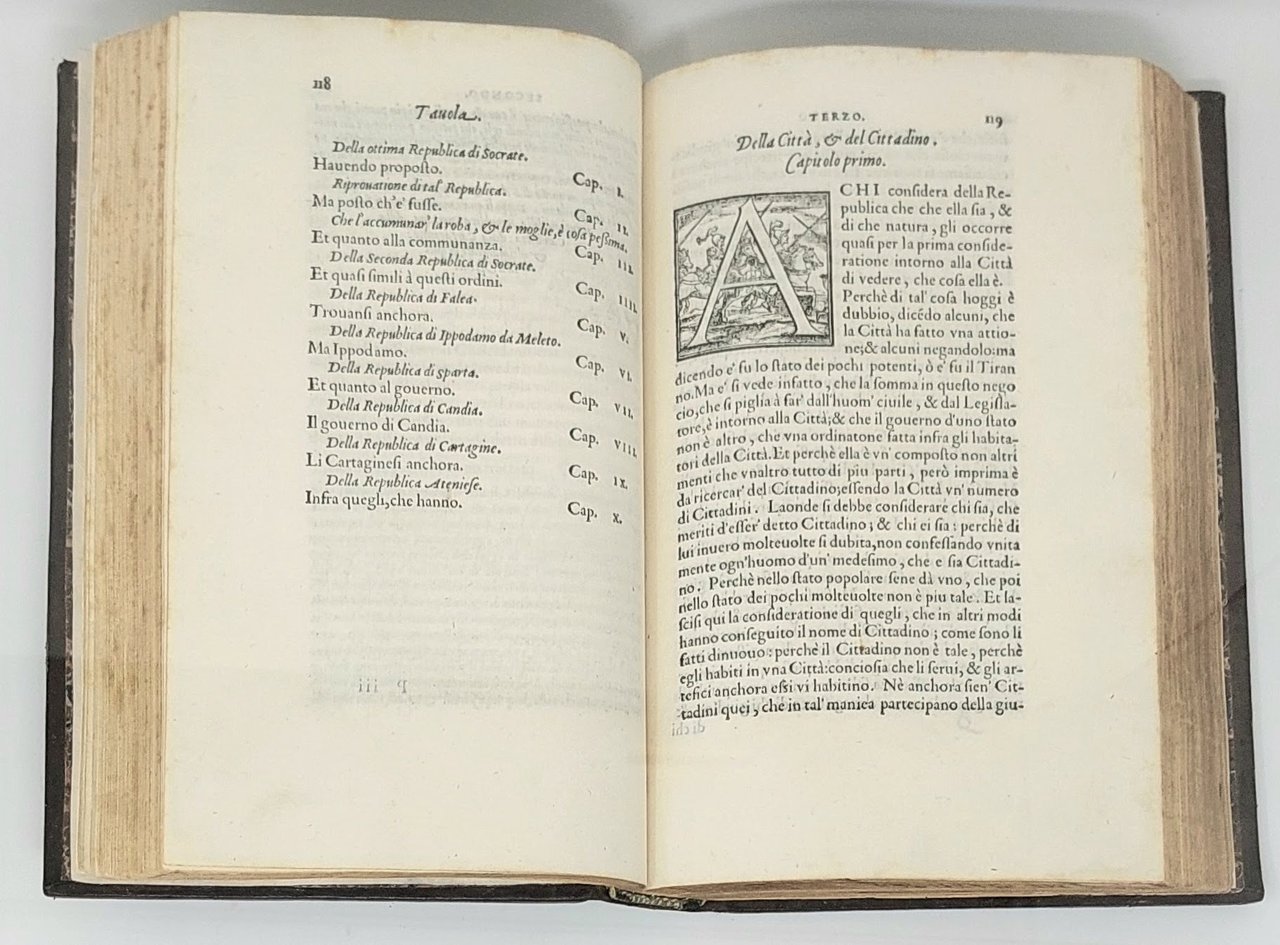 118
Tauola.
Della ottima Republica di Socrate.
Hauendo proposto. Cap. I.
Riprouatione di tal' Republica.
Ma posto ch'e' fusse. Cap. II.
Che l'accumunar' la roba, & le moglie, è cosa pessima.
Et quanto alla communanza. Cap. III.
Della Seconda Republica di Socrate.
Et quasi simili à questi ordini. Cap. IIII.
Della Republica di Falea.
Trouansi anchora. Cap. V.
Della Republica di Ippodamo da Meleto.
Ma Ippodamo. Cap. VI.
Della Republica di Sparta.
Et quanto al gouerno. Cap. VII.
Della Republica di Candia.
Il gouerno di Candia. Cap. VIII.
Della Republica di Cartagine.
Li Cartaginesi anchora. Cap. IX.
Della Republica Ateniese.
Infra quegli, che hanno. Cap. X.
TERZO. 119
Della Città, & del Cittadino.
Capitolo primo.
A CHI considera della Re-
publica che che ella sia, &
di che natura, gli occorre
quasi per la prima conside-
ratione intorno alla Città
di vedere, che cosa ella è.
Perchè di tal' cosa hoggi è
dubbio, dicẽdo alcuni, che
la Città ha fatto vna attio-
ne; & alcuni negandolo: ma
dicendo e' fu lo stato dei pochi potenti, ò e' fu il Tiran
no. Ma e' si vede infatto, che la somma in questo nego
cio, che si piglia à far' dall'huom' ciuile, & dal Legisla-
tore, è intorno alla Città; & che il gouerno d'uno stato
non è altro, che vna ordinatone fatta infra gli habita-
tori della Città. Et perchè ella è vn' composto non altri
menti che vnaltro tutto di piu parti, però imprima è
da ricercar' del Cittadino; essendo la Città vn' numero
di Cittadini. Laonde si debbe considerare chi sia, che
meriti d'esser' detto Cittadino; & chi ei sia: perchè di
lui inuero molteuolte si dubita, non confessando vnita
mente ogn'huomo d'un' medesimo, che e sia Cittadi-
no. Perchè nello stato popolare sene dà vno, che poi
nello stato dei pochi molteuolte non è piu tale. Et la-
scisi qui la consideratione di quegli, che in altri modi
hanno conseguito il nome di Cittadino; come sono li
fatti dinuouo: perchè il Cittadino non è tale, perchè
egli habiti in vna Città: conciosia che li serui, & gli ar-
tefici anchora essi vi habitino. Nè anchora sien' Cit-
tadini quei, che in tal' maniẽa partecipano della giu-